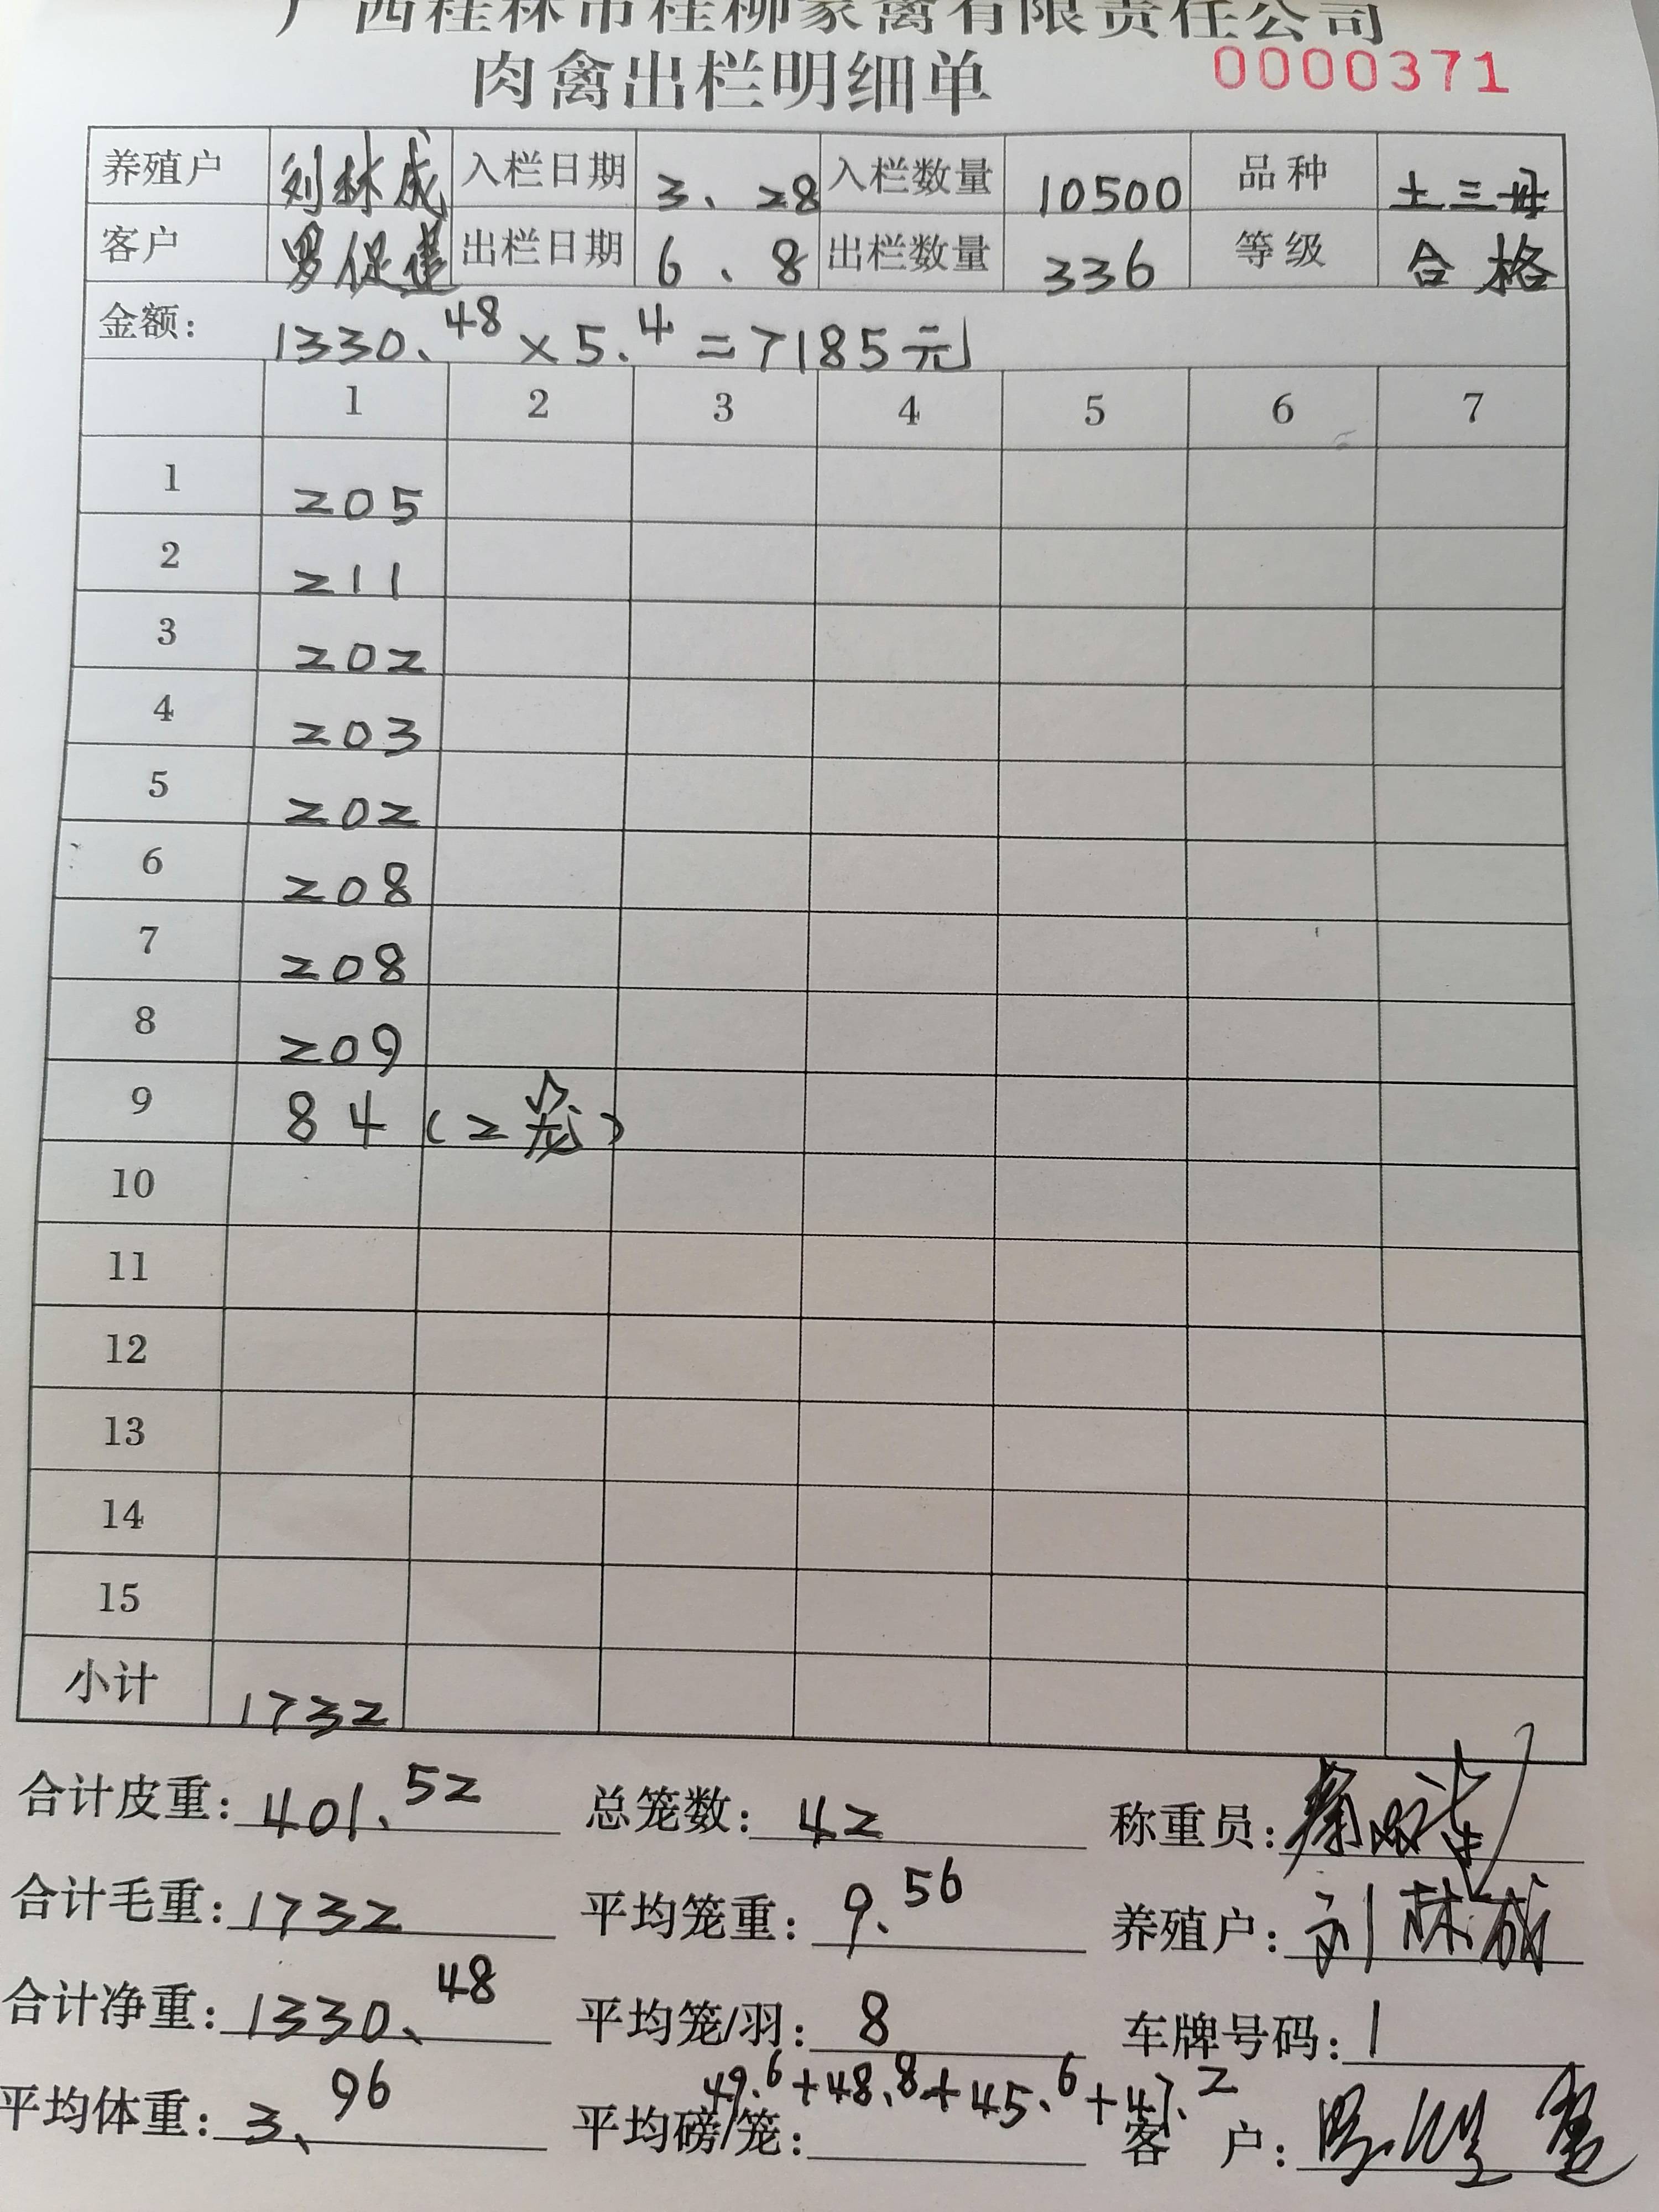 广西桂林市桂柳家禽有限责任公司
肉禽出栏明细单 0000371
养殖户 刘林成 入栏日期 3、28 入栏数量 10500 品种 土三母
客户 罗促 出栏日期 6、8 出栏数量 336 等级 合格
金额: 1330、48×5、4=7185元
1 2 3 4 5 6 7
1 205
2 211
3 202
4 203
5 202
6 208
7 208
8 209
9 84 (2笼)
10
11
12
13
14
15
小计 1732
合计皮重: 401、52 总笼数: 42 称重员:
合计毛重: 1732 平均笼重: 9、56 养殖户: 刘林成
合计净重: 1330、48 平均笼/羽: 8 车牌号码: 1
49.6+48.8+45.6+47.2
平均体重: 3、96 平均磅/笼: 客 户: